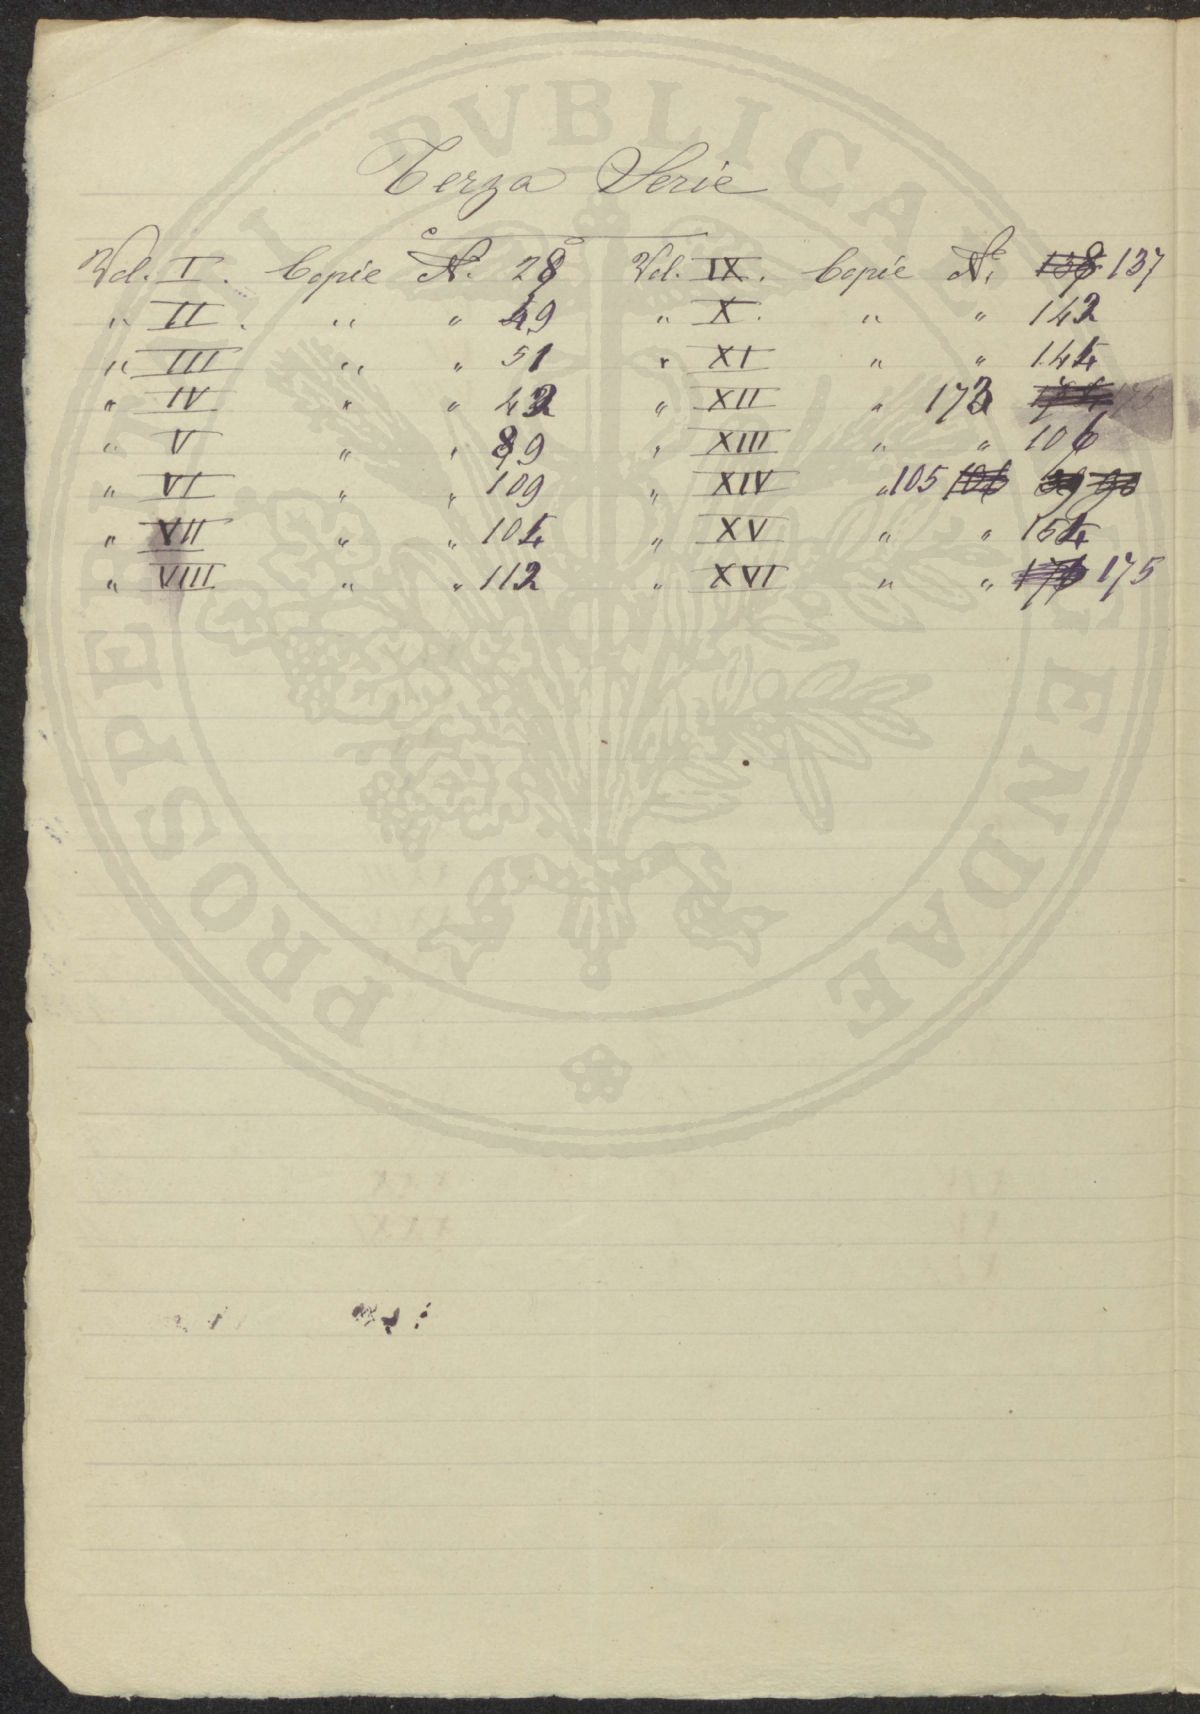 Terza Serie
Vol. I. Copie N. 28 Vol. IX. Copie N. 138 137
" II. " " 49 " X. " " 142
" III " " 51 " XI " " 144
" IV " " 42 " XII " 173 175
" V " " 89 " XIII " " 106
" VI " " 109 " XIV " 105 106 89 90
" VII " " 104 " XV " " 154
" VIII " " 112 " XVI " " 176 175
PROSPERITATI PVBLICAE AVGENDAE